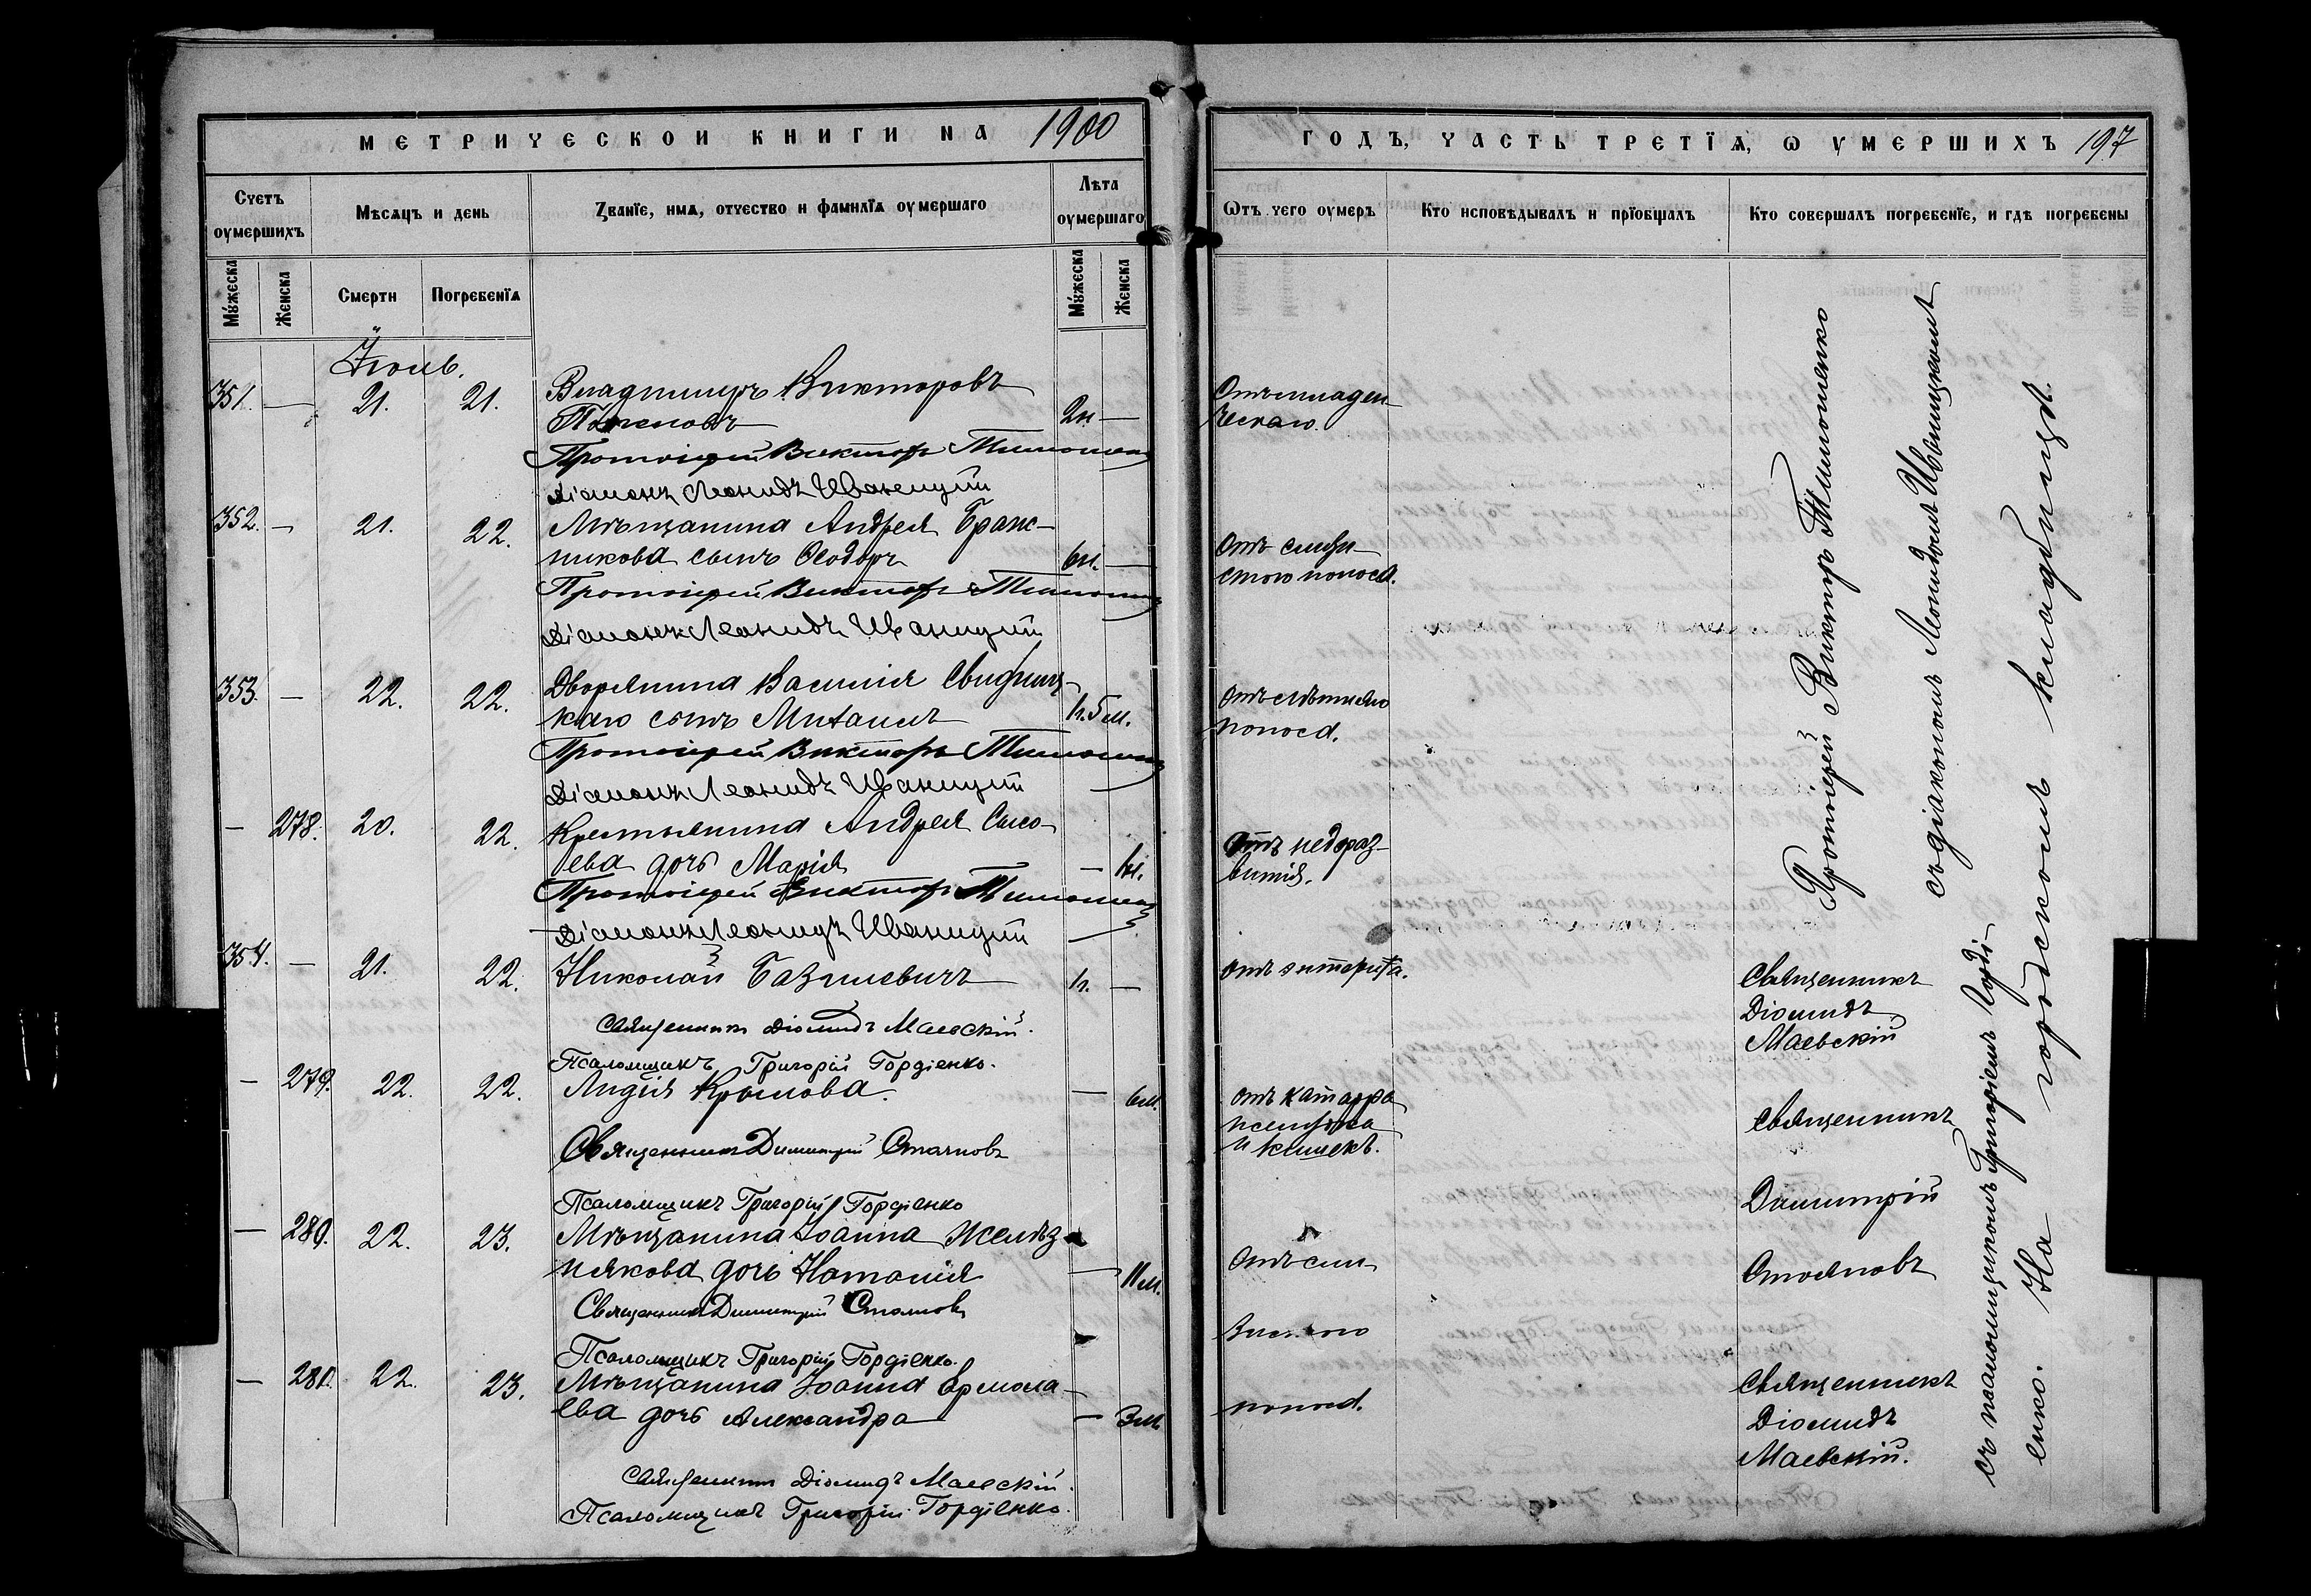 МЕТРИЧЕСКОЙ КНИГИ НА 1900
Счетъ оумершихъ
Мѣсяцъ и день
Званїе, имя, отчество и фамилїя оумершаго
Лѣта оумершаго
Мужеска
Женска
Смерти
Погребенїя
Мужеска
Женска
Іюль.
351. — 21. 21. Владиміръ Викторовъ
2н. —
Протоіерей Викторъ Тимошенко
Діаконъ Леонидъ Иваницкій
352. — 21. 22. Мѣщанина Андрея Браж-
никова сынъ Ѳеодоръ 6м. —
Протоіерей Викторъ Тимошенко
Діаконъ Леонидъ Иваницкій
353. — 22. 22. Дворянина Василія Свидниц-
каго сынъ Михаилъ 1г. 5м.
Протоіерей Викторъ Тимошенко
Діаконъ Леонидъ Иваницкій
— 278. 20. 22. Крестьянина Андрея
ева дочь Марія —
Протоіерей Викторъ Тимошенко
Діаконъ Леонидъ Иваницкій
354. — 21. 22. Николай Базилевичъ 1г. —
Священникъ Діомидъ Маевскій.
Псаломщикъ Григорій Гордіенко.
— 279. 22. 22. Лидія Крылова. — 6м.
Священникъ Димитрій Стояновъ
Псаломщикъ Григорій Гордіенко
— 280. 22. 23. Мѣщанина Іоанна Желѣз-
някова дочь Наталія — 11м.
Священникъ Димитрій Стояновъ
Псаломщикъ Григорій Гордіенко.
— 281. 22. 23. Мѣщанина Іоанна Ермола-
ева дочь Александра — 3м.
Священникъ Діомидъ Маевскій.
Псаломщикъ Григорій Гордіенко.
ГОДЪ, ЧАСТЬ ТРЕТЇЯ, Ѡ УМЕРШИХЪ 197
Ѡтъ чего оумеръ
Кто исповѣдывалъ и прїобщалъ
Кто совершалъ погребенїе, и гдѣ погребены
Отъ младен-
ческаго.
Отъ слизи-
стого поноса.
Отъ лѣтняго
поноса.
Отъ недораз-
витія.
Отъ энтерита.
Отъ катарра
желудка
и кишекъ.
Отъ сли
зистого
поноса.
Протоіерей Викторъ Тимошенко
съ діакономъ Леонидомъ Иваницкимъ
Священникъ
Діомидъ
Маевскій
Священникъ
Димитрій
Стояновъ
Священникъ
Діомидъ
Маевскій.
съ псаломщикомъ Григоріемъ Горді-
енко. На городскомъ кладбищѣ.